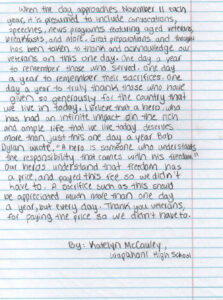 When the day approaches, November 11 each
year, it is presumed to include convocations,
speeches, news programs featuring aged veterans,
breakfasts and more. Great preparations and thought
has been taken to thank and acknowledge our
veterans on this one day. One day a year
to remember those who served. One day
a year to remember their sacrifices. One
day a year to truly thank those who have
given so generously for the country that
we live in today. I believe that a hero who
has had an infinite impact on the rich
and ample life that we live today deserves
more than just this one day a year. Bob
Dylan wrote, "A hero is someone who understands
the responsibility that comes with his freedom."
Our heros understand that freedom has
a price, and payed this fee so we didn't
have to. A sacrifice such as this should
be appreciated much more than one day
a year, but every day. Thank you veterans,
for paying the price so we didn't have to.
By: Katelyn McCauley,
Wapahani High School